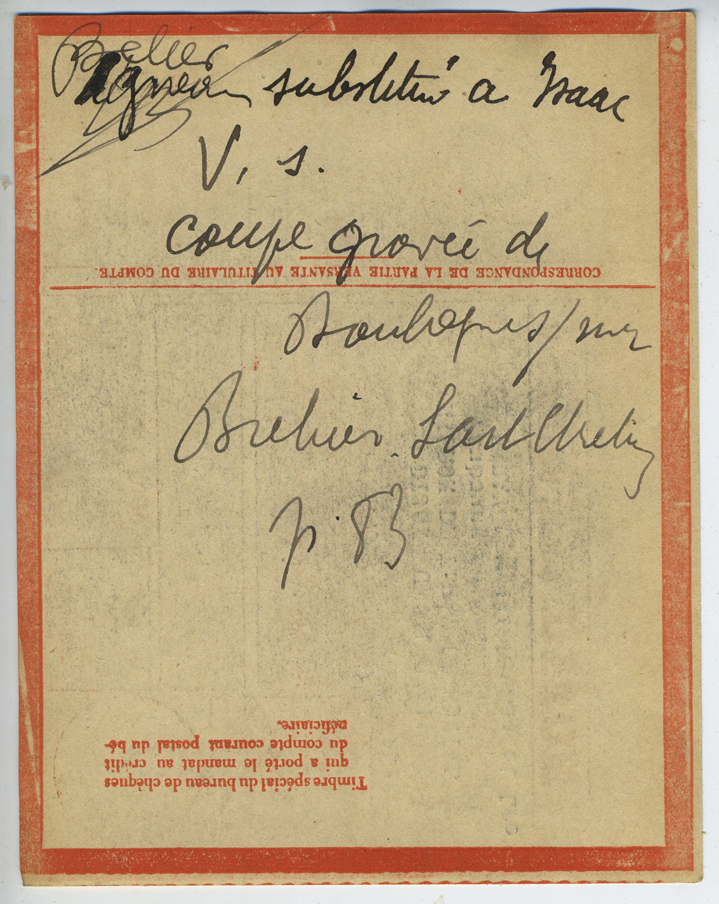 Bélier
Agneau substitué à Isaac
V. s.
coupe gravée de
CORRESPONDANCE DE LA PARTIE VERSANTE AU TITULAIRE DU COMPTE.
Boulogne s/mer
Brehier. L'art Chretien
p. 73
Timbre spécial du bureau de chèques
qui a porté le mandat au crédit
du compte courant postal du bé-
néficiaire.